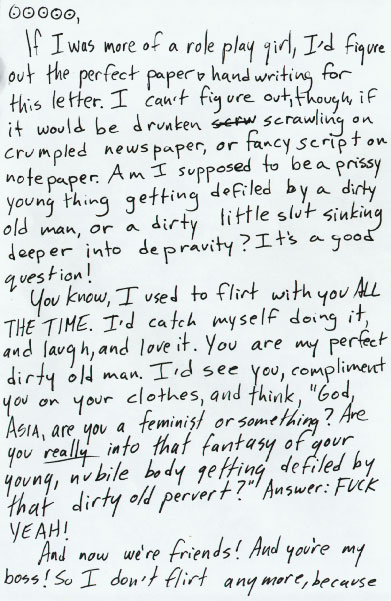 OOOOO,
If I was more of a role play girl, I'd figure
out the perfect paper & handwriting for
this letter. I can't figure out, though, if
it would be drunken scrw scrawling on
crumpled newspaper, or fancy script on
notepaper. Am I supposed to be a prissy
young thing getting defiled by a dirty
old man, or a dirty little slut sinking
deeper into depravity? It's a good
question!
You know, I used to flirt with you ALL
THE TIME. I'd catch myself doing it,
and laugh, and love it. You are my perfect
dirty old man. I'd see you, compliment
you on your clothes, and think, "God,
ASIA, are you a feminist or something? Are
you really into that fantasy of your
young, nubile body getting defiled by
that dirty old pervert?" Answer: FUCK
YEAH!
And now we're friends! And you're my
boss! So I don't flirt anymore, because